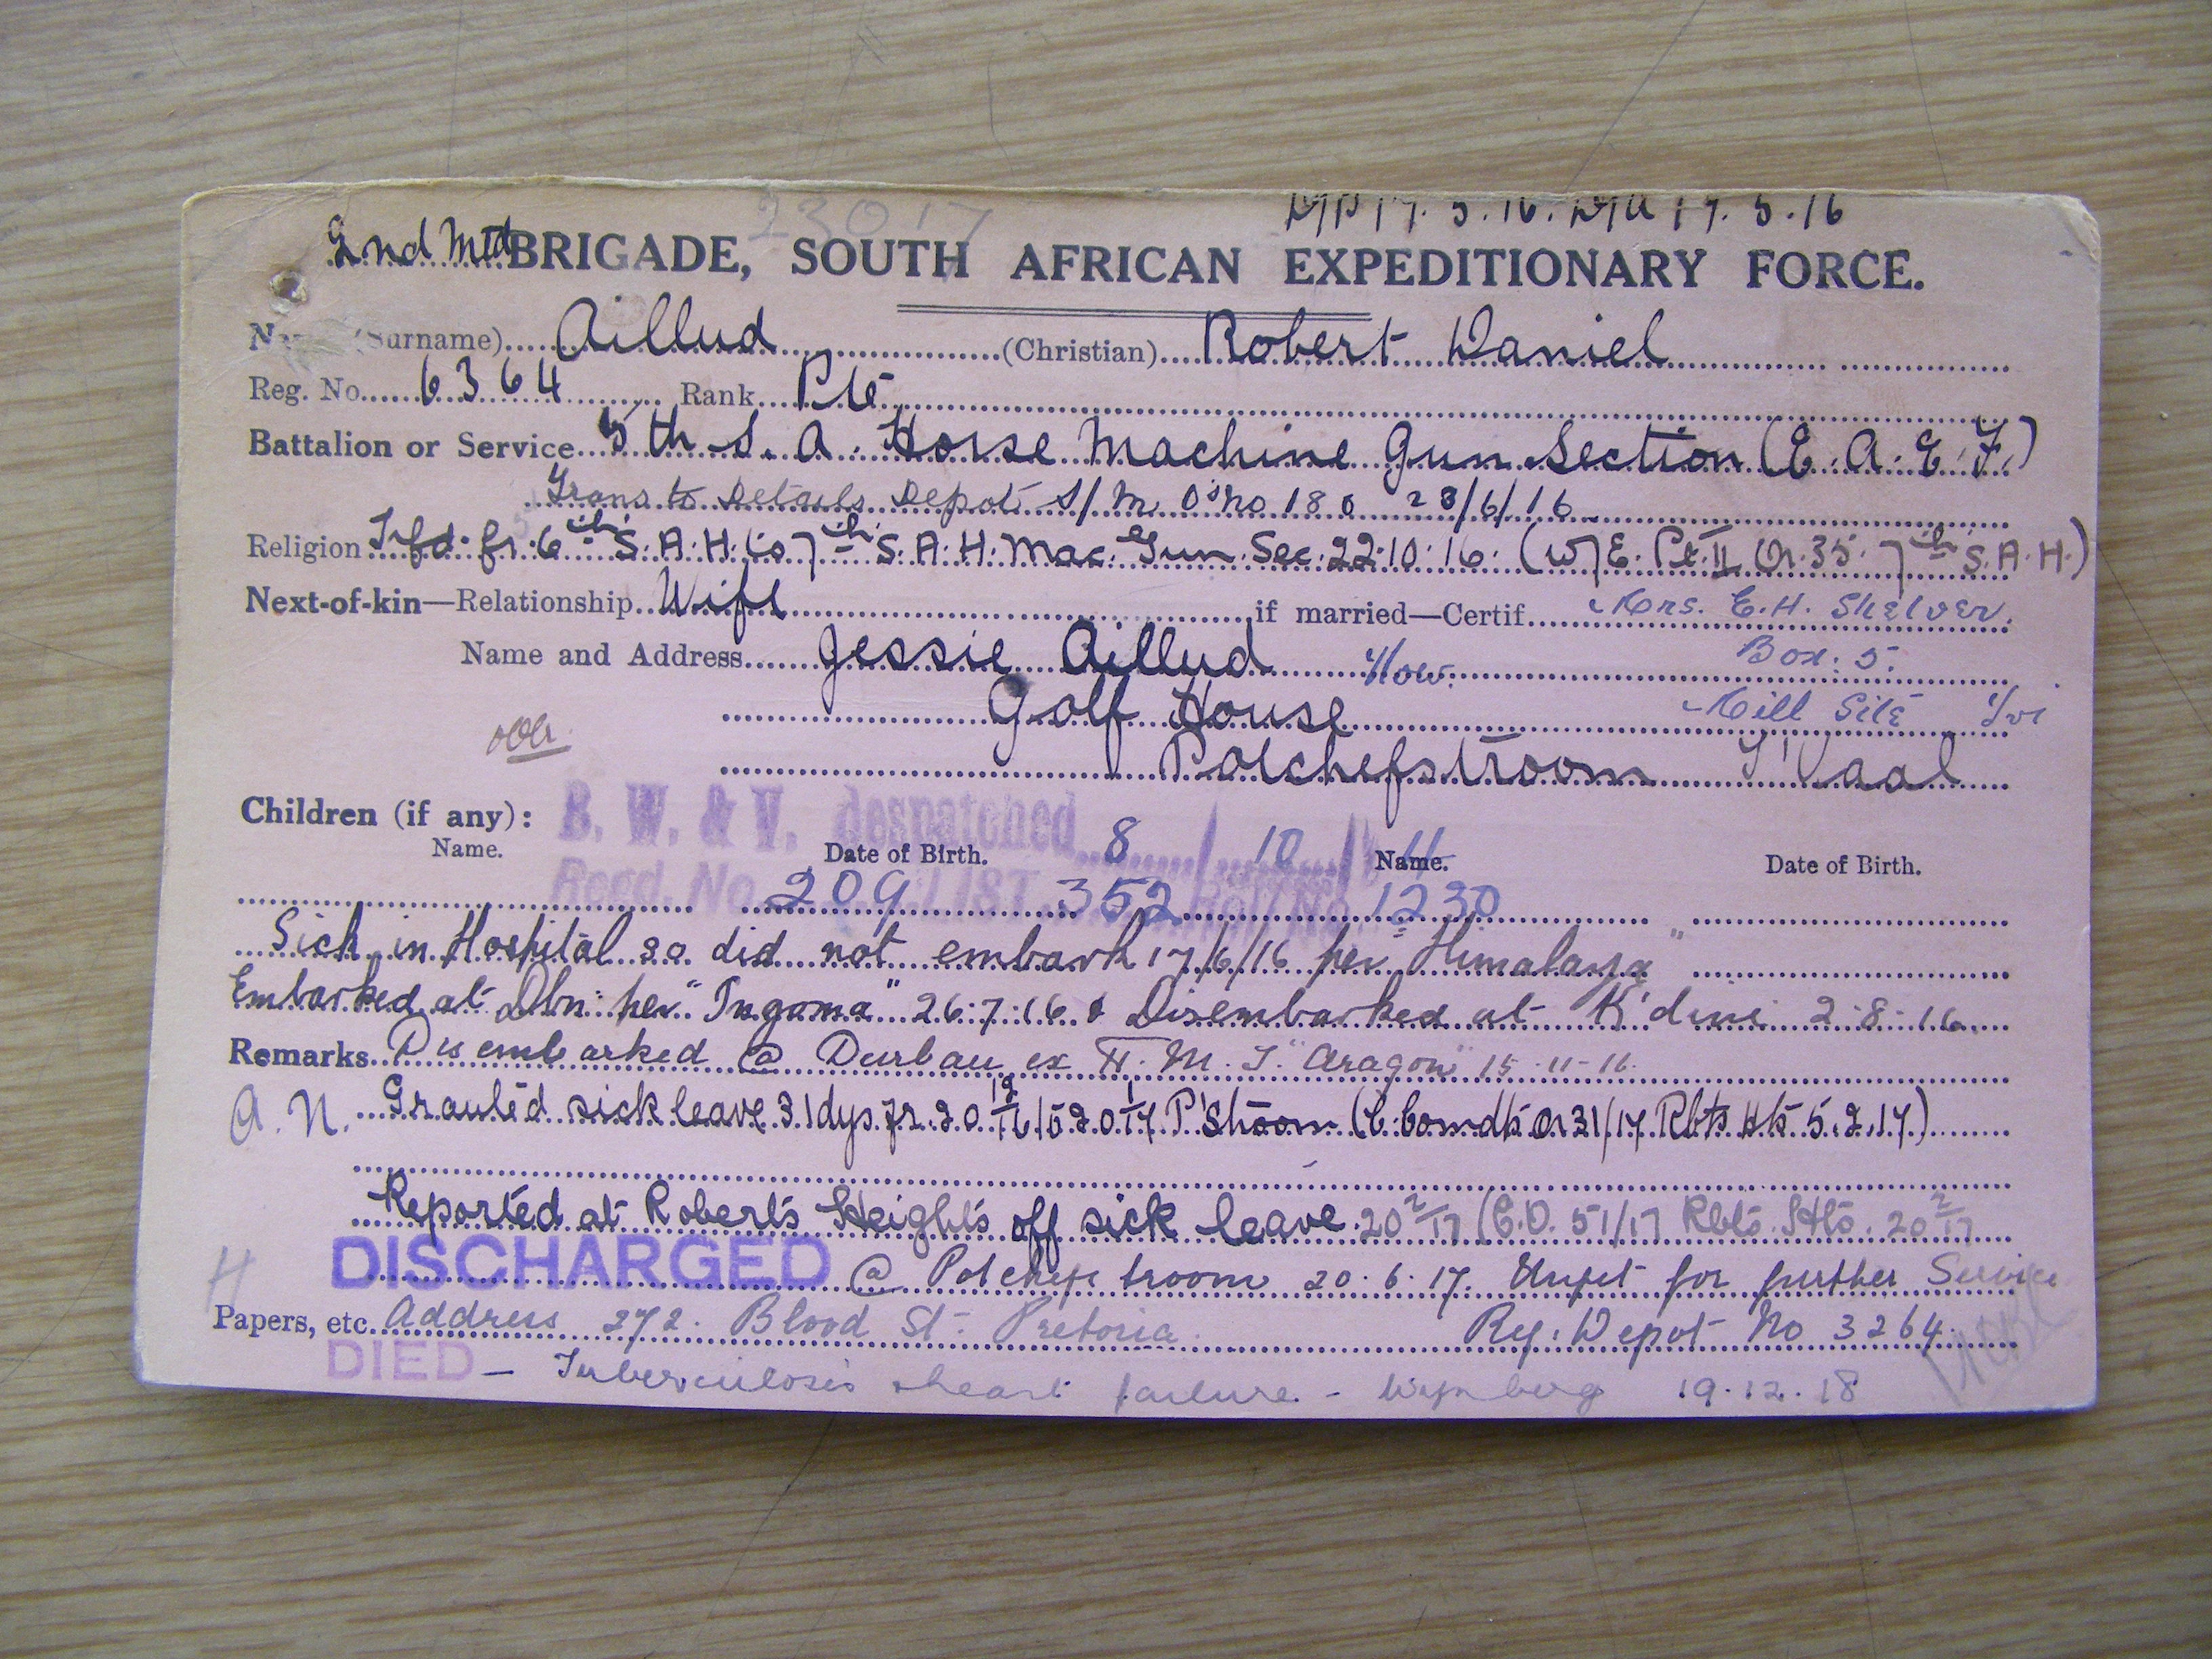 23017
17.5.16. 17.5.16
2nd Mtd BRIGADE, SOUTH AFRICAN EXPEDITIONARY FORCE.
(Surname) Aillud (Christian) Robert Daniel
Reg. No. 6364 Rank Pte
Battalion or Service 5th S. A. Horse Machine Gun Section (E. A. E. F.)
Trans to Details Depot S/M O's No 180 23/6/16
Religion Trfd. fr. 6th S.A.H. to 7th S.A.H. Mac. Gun. Sec. 22.10.16. (W/E. Pt. II Or. 35. 7th S.A.H.)
Next-of-kin—Relationship Wife if married—Certif. Mrs. E.H. Shelver.
Name and Address Jessie Aillud Now. Box. 5.
Golf House Mill Site
Potchefstroom T'Vaal
Children (if any): B. W. & V. despatched 8/10/
Name. Date of Birth. Name. Date of Birth.
Regd. No. 209 LIST 352 Roll No. 1230
Sick in Hospital so did not embark 17/6/16 per "Himalaya"
Embarked at Dbn: per "Ingoma" 26:7:16 & Disembarked at K'dini 2.8.16
Remarks Disembarked @ Durban ex H.M.T. "Aragon" 15-11-16.
A. N. Granted sick leave 31 dys. fr. 20 12/16 to 20 1/17 P'Stroom (C. Comdts Or 31/17 Rbts Hts 5.2.17)
Reported at Roberts Heights off sick leave 20 2/17 (C.O. 51/17 Rbts. Hts. 20 2/17
H DISCHARGED @ Potchefstroom 20.6.17. Unfit for further Service
Papers, etc. Address 272. Blood St. Pretoria. Reg: Depot No 3264.
DIED — Tuberculosis heart failure - Wynberg 19.12.18